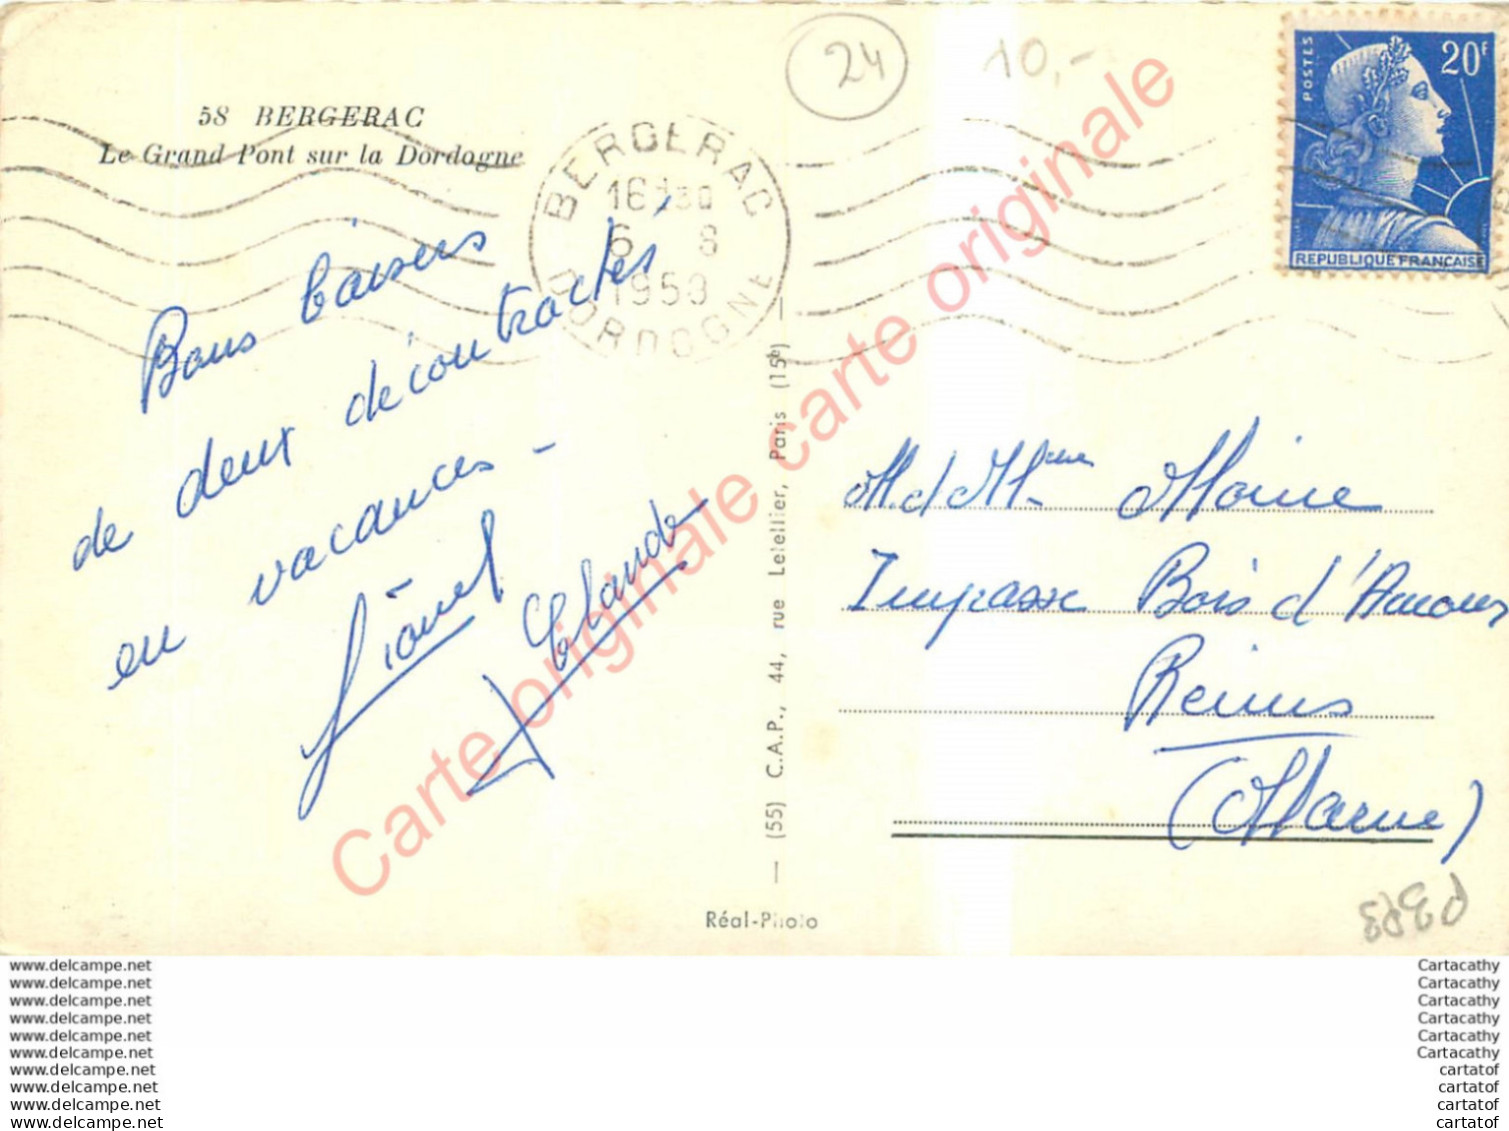 58 BERGERAC
Le Grand Pont sur la Dordogne
24
10,-
BERGERAC
16 30
6 8
195
DORDOGNE
POSTES
20F
REPUBLIQUE FRANCAISE
Bons baisers
de deux décontractés
en vacances -
Lionel
Claude
— (55) C.A.P., 44, rue Letellier, Paris (15e) —
Réal-Photo
M. d Mme Moine
Impasse Bois d'Amour
Reims
(Marne)
Carte originale carte originale
www.delcampe.net
www.delcampe.net
www.delcampe.net
www.delcampe.net
www.delcampe.net
www.delcampe.net
www.delcampe.net
www.delcampe.net
www.delcampe.net
www.delcampe.net
Cartacathy
Cartacathy
Cartacathy
Cartacathy
Cartacathy
Cartacathy
cartatof
cartatof
cartatof
cartatof